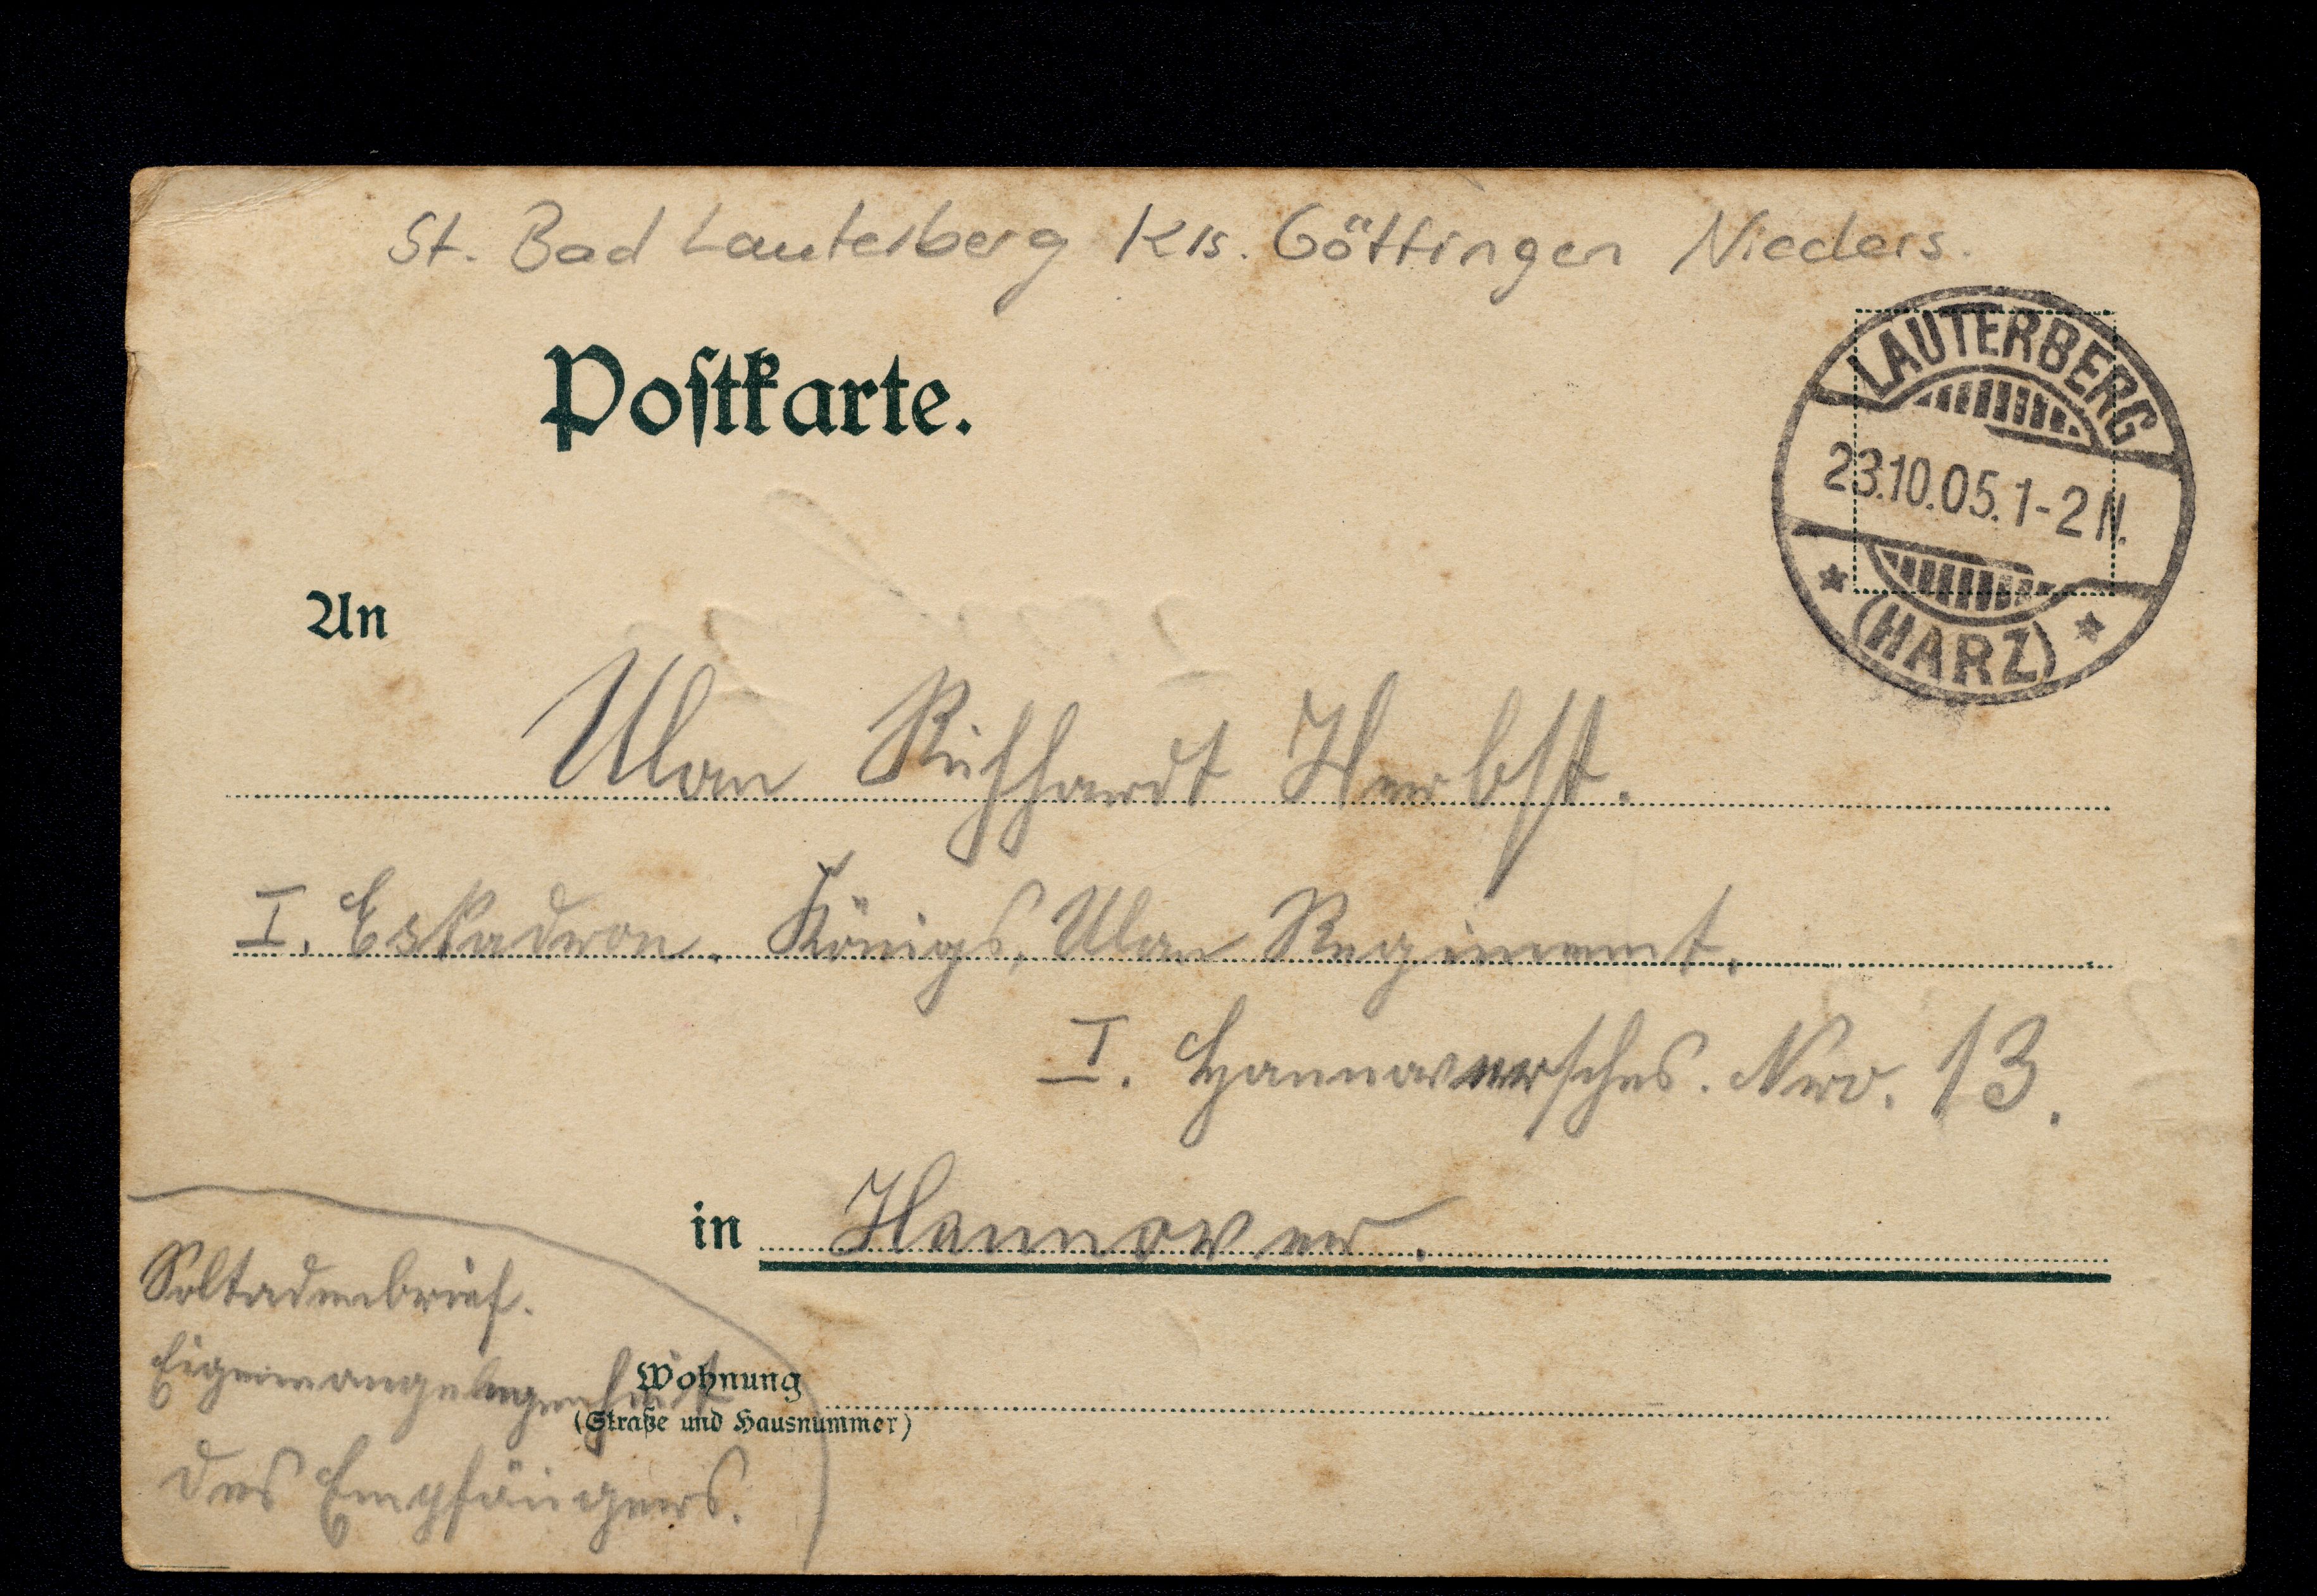 St. Bad Lauterberg Krs. Göttingen Nieders.
Postkarte.
LAUTERBERG
23.10.05.1-2N.
(HARZ)
An
Ulan Richhardt Herbst.
I. Eskadron. Königs, Ulan Regiment.
I. Hannoversches. Nro. 13.
in Hannover.
Soltadenbrief.
Eigenenangelegenheit
des Empfängers.
Wohnung
(Straße und Hausnummer)